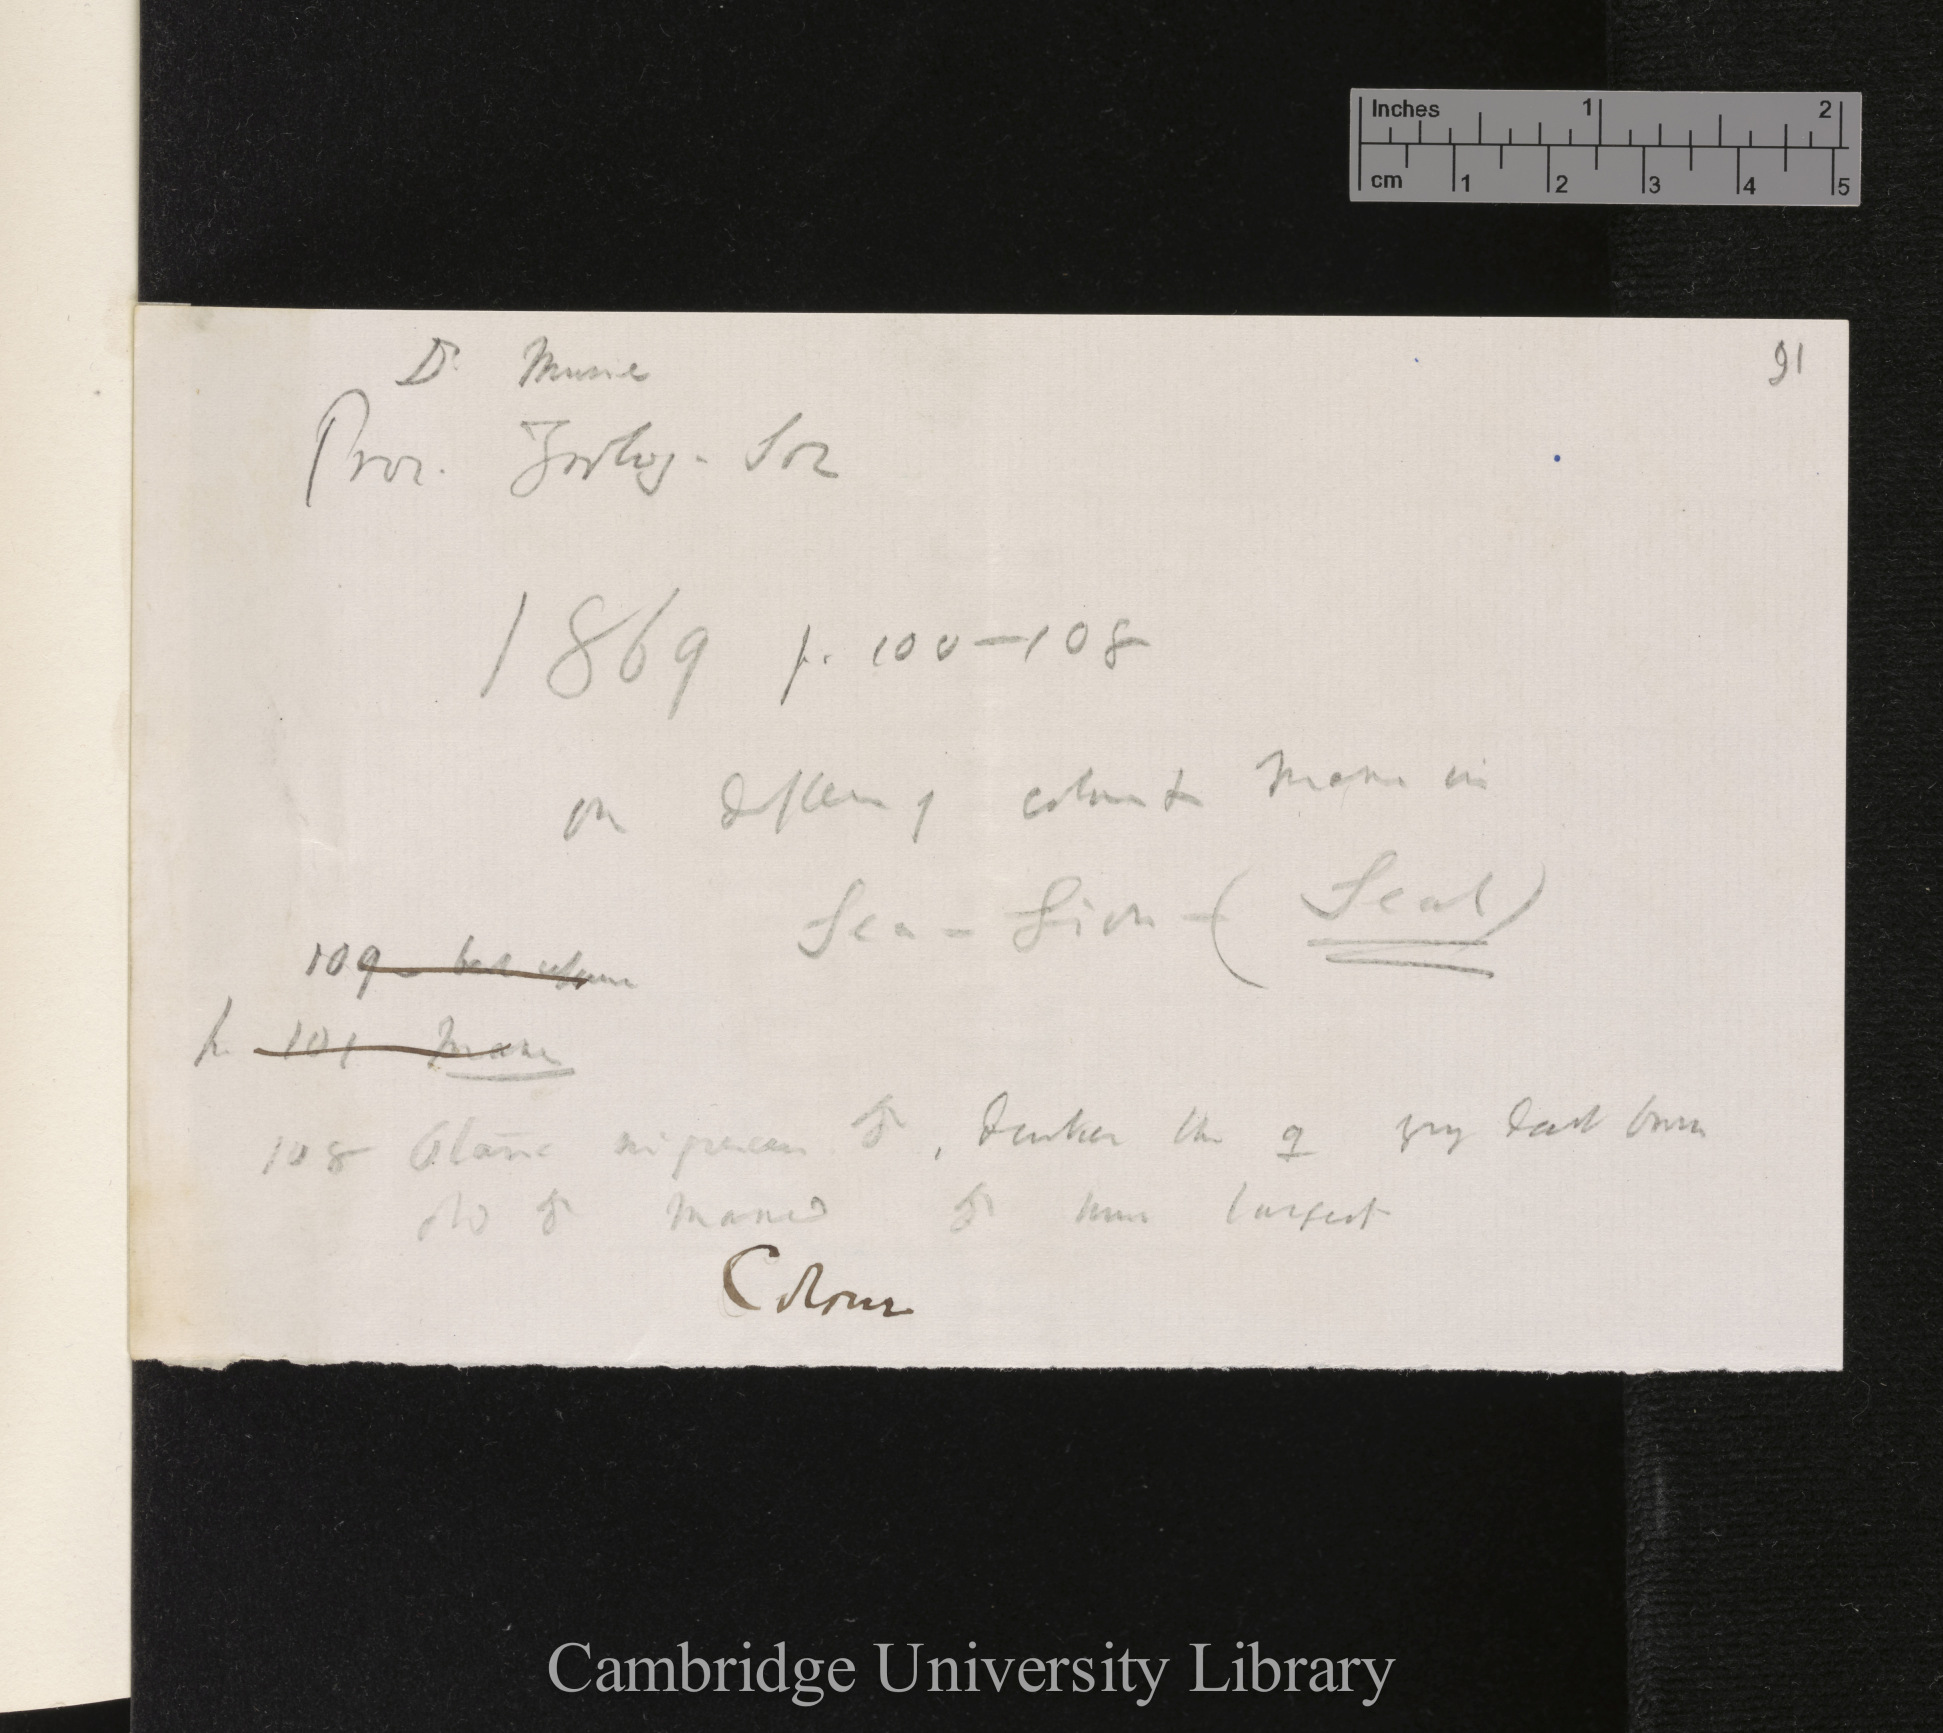 Inches 1 2
cm 1 2 3 4 5
91
Dr. Murie
Proc. Zoolog. Soc
1869 p. 100–108
on differ of colour & mane in
Sea-Lion – (Seal)
109 – best colour
p. 101 Mane
108 Otaria nigrescens ♂, darker than ♀ grey dark brown
old ♂ maned ♂ much largest
Colour
Cambridge University Library